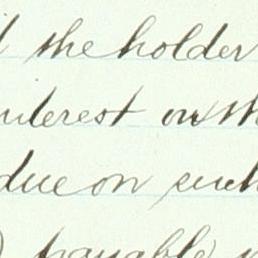 the holder
interest on th
due on such
payable